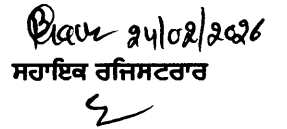 24/02/2026
ਸਹਾਇਕ ਰਜਿਸਟਰਾਰ